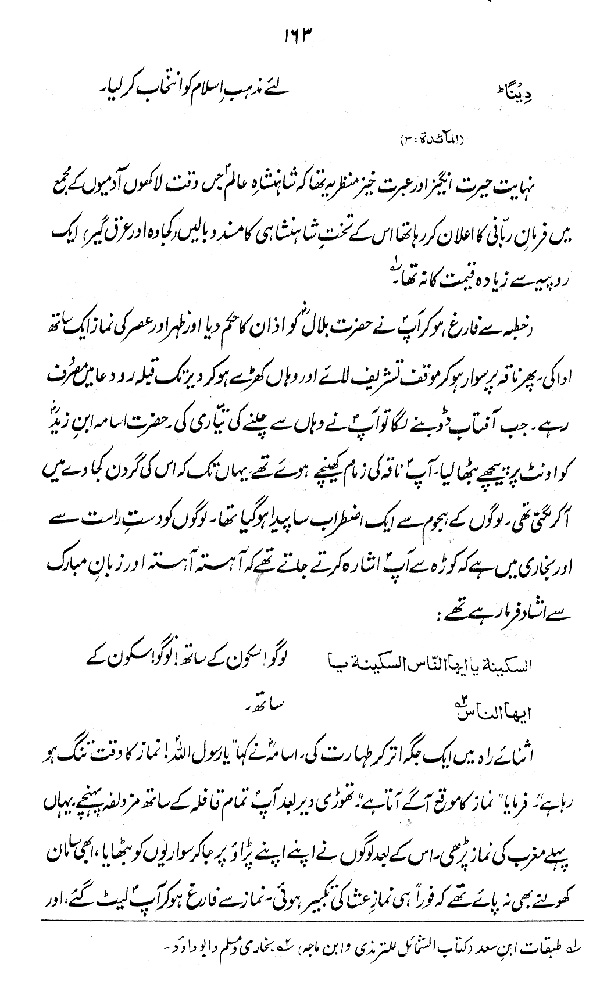 ۱۶۳
دِیْنًا ؕ لئے مذہب اسلام کو انتخاب کر لیا۔
(المآئدۃ: ۳)
نہایت حیرت انگیز اور عبرت خیز منظر یہ تھا کہ شاہنشاہِ عالم جس وقت لاکھوں آدمیوں کے مجمع
میں فرمانِ ربّانی کا اعلان کر رہا تھا اس کے تختِ شاہنشاہی کا مسند و بالیں (کجاوہ اور عرق گیر) ایک
روپیہ سے زیادہ قیمت کا نہ تھا۔؎۱
خطبہ سے فارغ ہو کر آپؐ نے حضرت بلالؓ کو اذان کا حکم دیا اور ظہر اور عصر کی نماز ایک ساتھ
ادا کی۔ پھر ناقہ پر سوار ہو کر موقف تشریف لائے اور وہاں کھڑے ہو کر دیر تک قبلہ رو دعا میں مصروف
رہے۔ جب آفتاب ڈوبنے لگا تو آپؐ نے وہاں سے چلنے کی تیاری کی۔ حضرت اسامہ ابن زیدؓ
کو اونٹ پر پیچھے بٹھا لیا۔ آپؐ ناقہ کی زمام کھینچے ہوئے تھے، یہاں تک کہ اس کی گردن کجاوے میں
آکر لگتی تھی۔ لوگوں کے ہجوم سے ایک اضطراب سا پیدا ہو گیا تھا۔ لوگوں کو دستِ راست سے
اور بخاری میں ہے کہ کوڑہ سے آپؐ اشارہ کرتے جاتے تھے کہ آہستہ آہستہ اور زبانِ مبارک
سے ارشاد فرما رہے تھے:
السکینة یا ایھا النّاس السکینة یا لوگو! سکون کے ساتھ! لوگو! سکون کے
ایھا الناس؎۲ ساتھ۔
اثنائے راہ میں ایک جگہ اتر کر طہارت کی۔ اسامہؓ نے کہا "یا رسول اللہ! نماز کا وقت تنگ ہو
رہا ہے"۔ فرمایا "نماز کا موقع آگے آتا ہے"۔ تھوڑی دیر بعد آپؐ تمام قافلہ کے ساتھ مزدلفہ پہنچے یہاں
پہلے مغرب کی نماز پڑھی۔ اس کے بعد لوگوں نے اپنے اپنے پڑاؤ پر جا کر سواریوں کو بٹھایا، ابھی سامان
کھولنے بھی نہ پائے تھے کہ فوراً ہی نمازِ عشا کی تکبیر ہوئی۔ نماز سے فارغ ہو کر آپؐ لیٹ گئے، اور
؎۱ طبقات ابن سعد و کتاب الشمائل للترمذی و ابن ماجہ، ؎۲ بخاری و مسلم و ابو داؤد۔